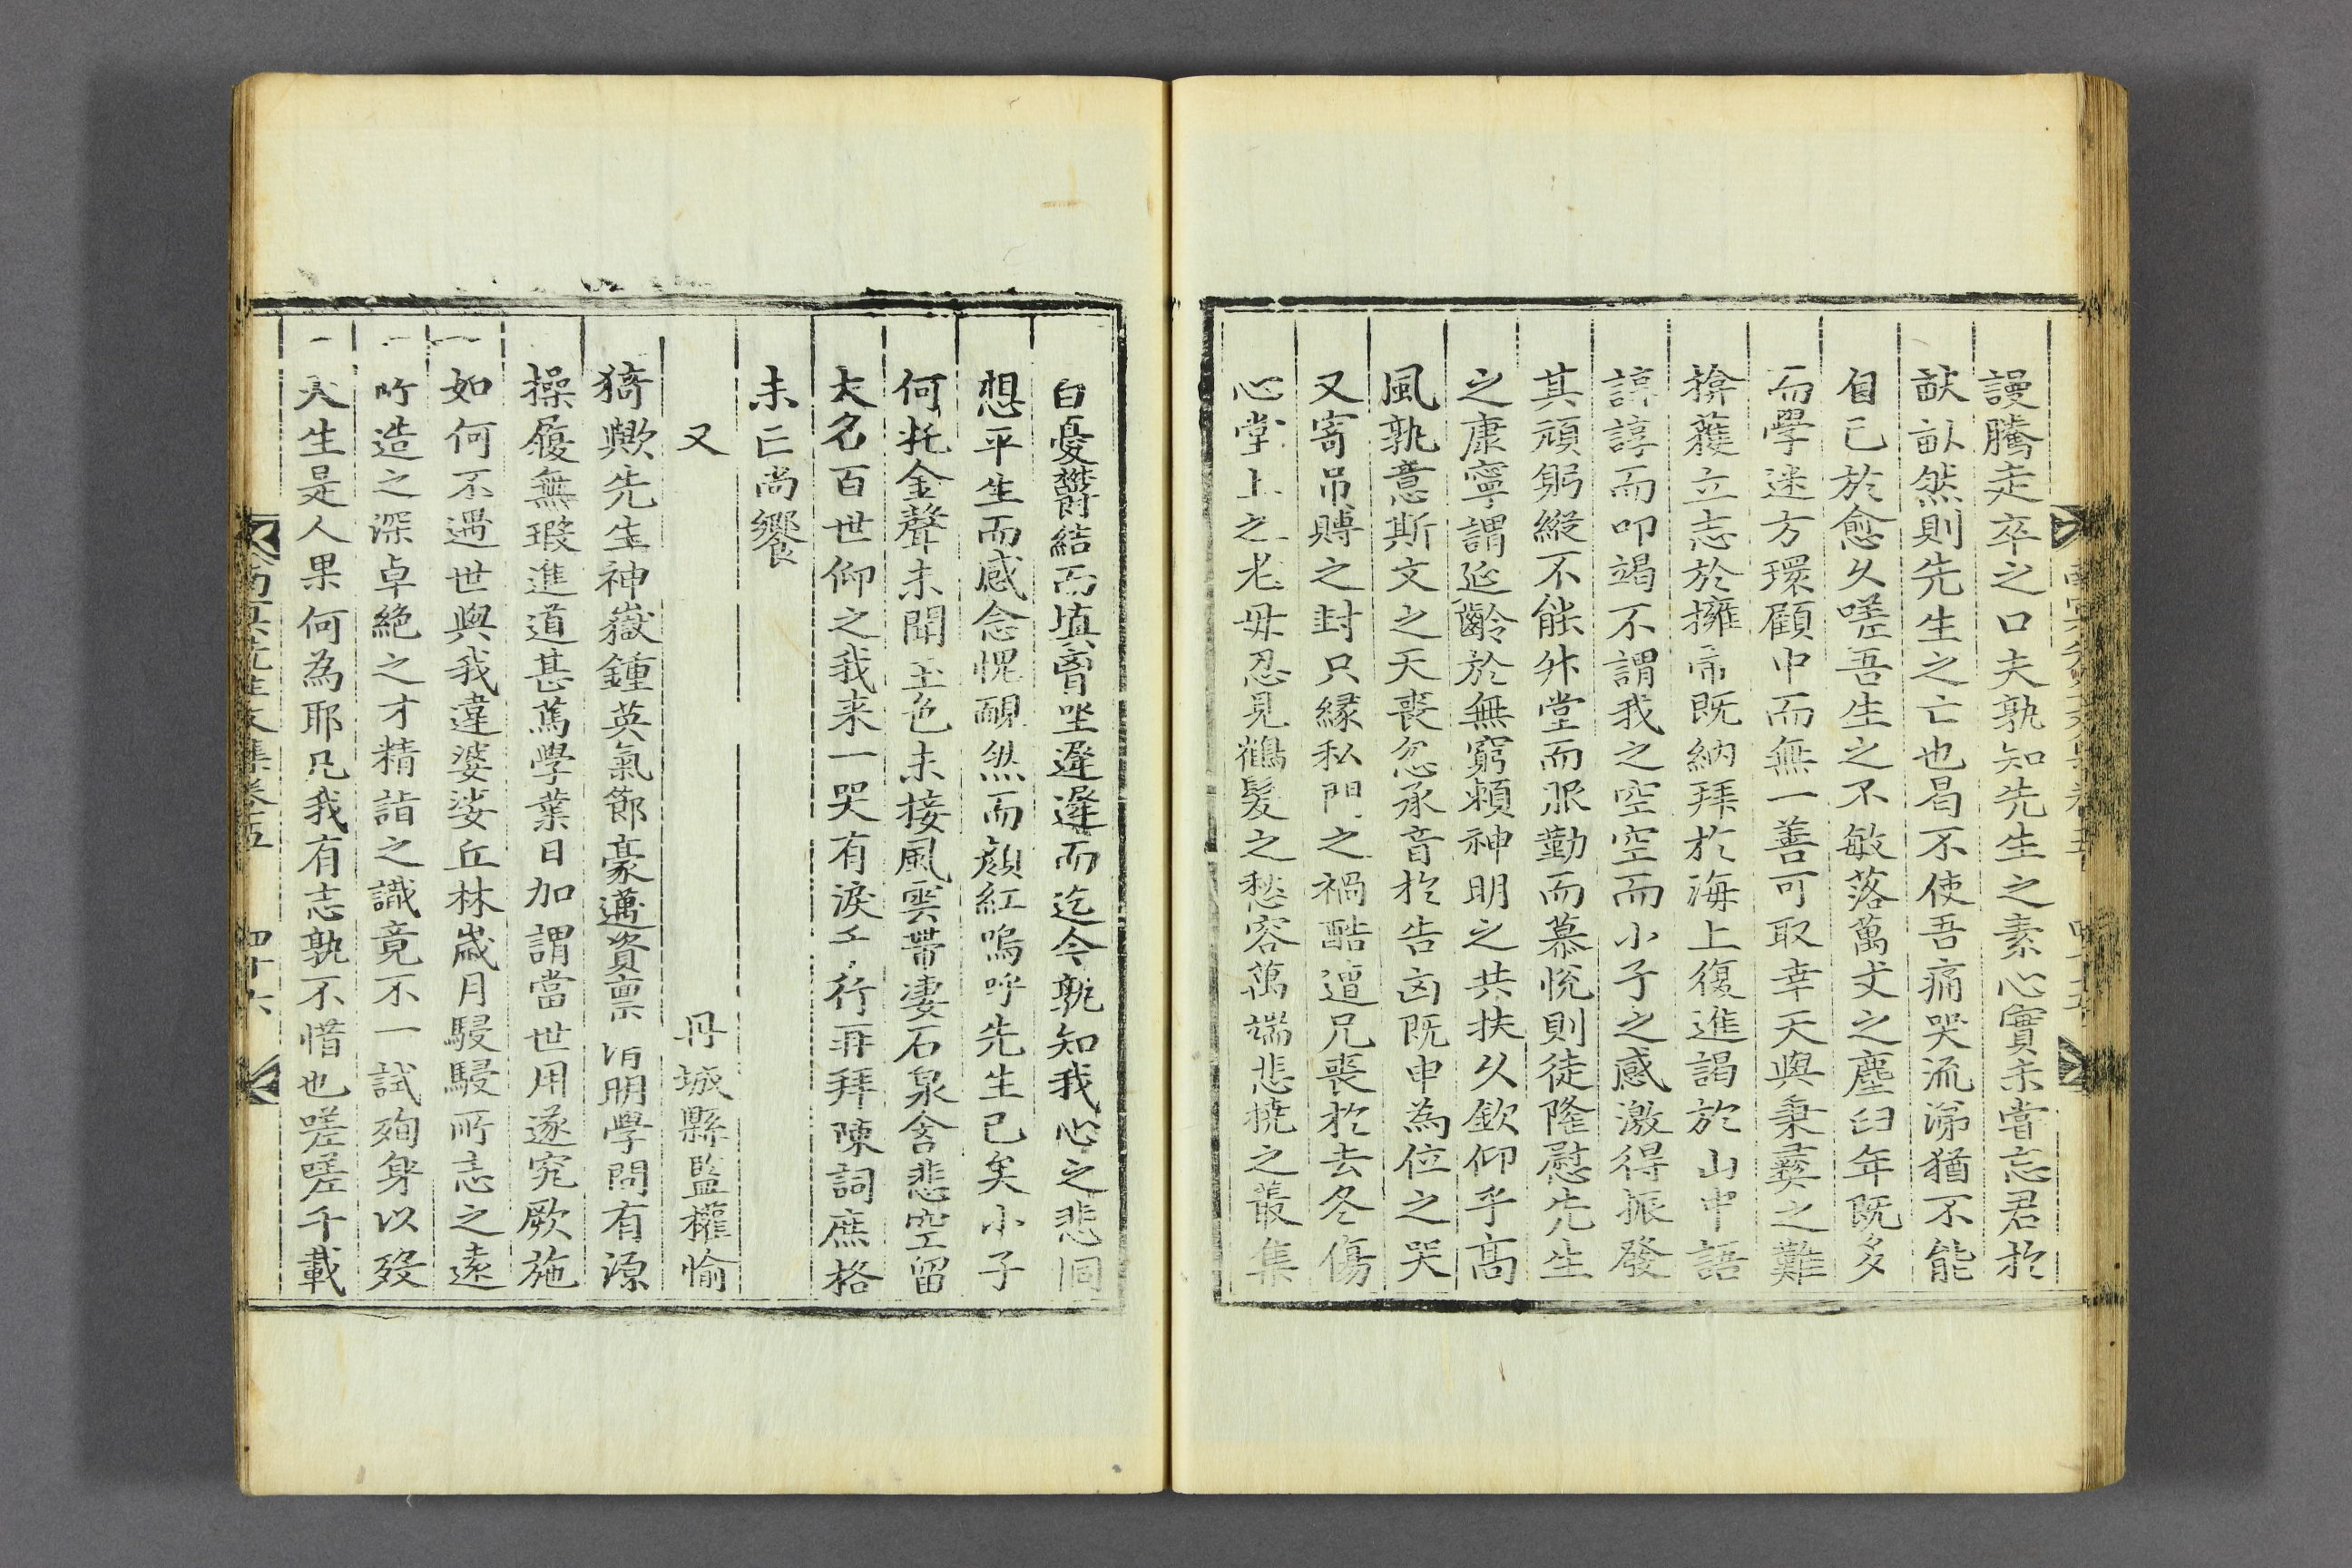 謾騰走卒之口夫孰知先生之素心實未嘗忘君於
畎畝然則先生之亡也曷不使吾痛哭流涕猶不能
自已於愈久嗟吾生之不敏落萬丈之塵臼年既多
而學迷方環顧中而無一善可取幸天與秉彛之難
揜蘀立志於擁帚既納拜於海上復進謁於山中語
諄諄而叩竭不謂我之空空而小子之感激得振發
其頑躬縱不能升堂而服勤而慕悅則徒隆慰先生
之康寧謂延齡於無窮頼神明之共扶久欽仰乎高
風孰意斯文之天喪忽承音於告凶既申為位之哭
又寄吊賻之封只緣私門之禍酷遭兄喪於去冬傷
心堂上之老母忍見鶴髮之愁容萬端悲撓之叢集
白憂欝結而塡胷坐遲遲而迄今孰知我心之悲恫
想平生而感念愧靦然而顔紅嗚呼先生已矣小子
何托金聲未聞玉色未接風雲帶凄石泉含悲空留
大名百世仰之我来一哭有淚工行再拜陳詞庶格
未亡尚饗
又 丹城縣監權愉
猗歟先生神嶽鍾英氣節豪邁資禀 明學問有源
操履無瑕進道甚篤學業日加謂當世用遂究厥施
如何不遇世與我違婆娑丘林歲月駸駸所志之遠
所造之深卓絶之才精詣之識竟不一試殉身以歿
天生是人果何為耶凡我有志孰不惜也嗟嗟千載
南冥先生文集卷五 四十六